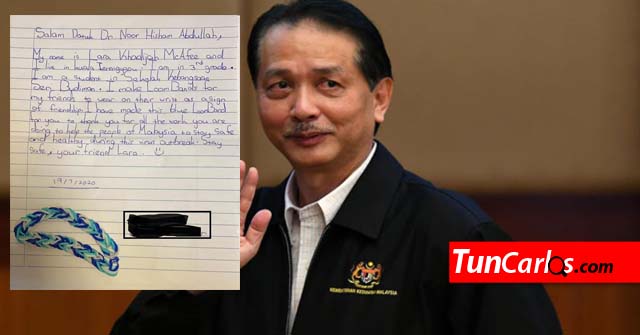 Salam Datuk Dr Noor Hisham Abdullah,
My name is Lara Khadijah McAfee and
I live in Kuala Terengganu. I am in 3rd grade.
I am a student in Sekolah Kebangsaan
Seri Budiman. I make Loom Bands for
my friends to wear on their wrists as a sign
of friendship. I have made this blue LoomBand
for you to thank you for all the work you are
doing to help the people of Malaysia to stay safe
and healthy during this virus outbreak. Stay
Safe, your friend Lara.
19/7/2020
KEMENTERIAN KESIHATAN MALAYSIA
TunCarlos.com